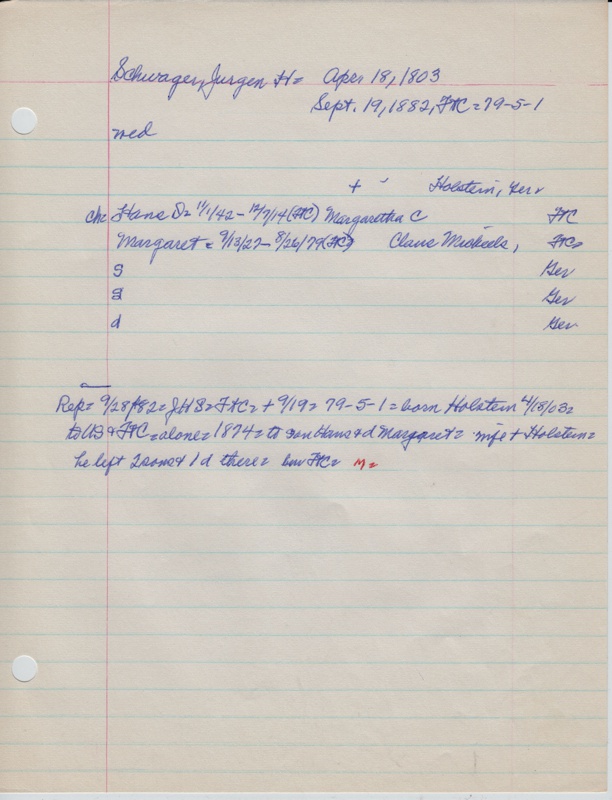 Schwager, Jurgen H= Apr. 18, 1803
Sept. 19, 1882, FTC = 79-5-1
wed
+ - Holstein, Ger.
ch= Hans D= 11/1/42 - 12/7/14 (FTC) Margaretha C FTC
Margaret = 9/13/27 - 8/26/79 (FTC) Claus Michaels, FTC=
S Ger
S Ger
d Ger
Rep= 9/28/1882 = JHS = FTC = + 9/19 = 79-5-1 = born Holstein 4/18/03 =
to US & FTC = alone = 1874 = to son Hans & d Margaret = wife + Holstein =
he left 2 sons & 1 d there = bur FTC = M=